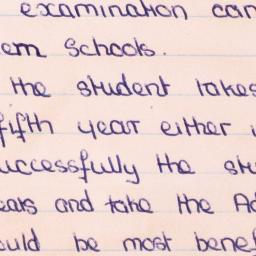 examination can
em schools.
the student takes
fifth year either i
uccessfully the stu
ears and take the Ad
ould be most benef